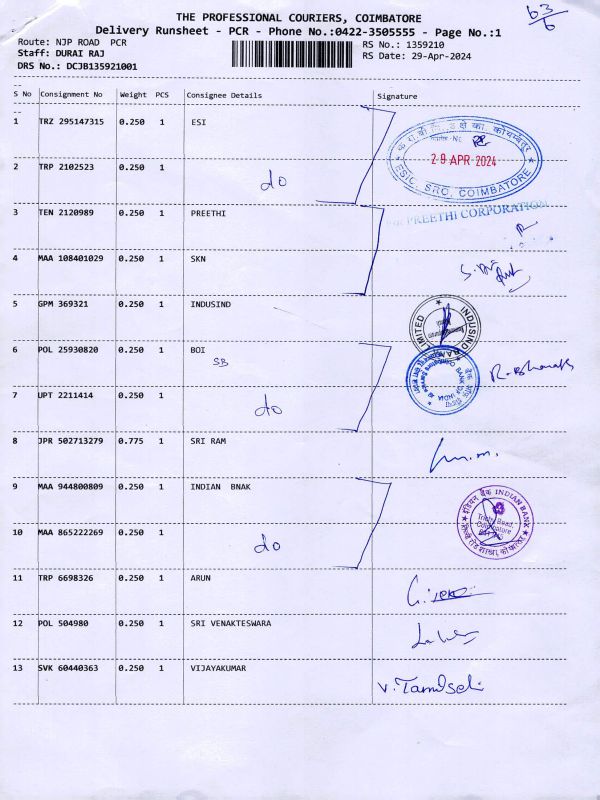 63/6
THE PROFESSIONAL COURIERS, COIMBATORE
Delivery Runsheet - PCR - Phone No.:0422-3505555 - Page No.:1
Route: NJP ROAD PCR
RS No.: 1359210
Staff: DURAI RAJ
RS Date: 29-Apr-2024
DRS No.: DCJB135921001
S No Consignment No Weight PCS Consignee Details Signature
1 TRZ 295147315 0.250 1 ESI
29 APR 2024
ESIC, SRO, COIMBATORE
2 TRP 2102523 0.250 1 do
3 TEN 2120989 0.250 1 PREETHI
PREETHI CORPORATION
4 MAA 108401029 0.250 1 SKN
5 GPM 369321 0.250 1 INDUSIND
INDUSIND BANK LIMITED
6 POL 25930820 0.250 1 BOI
SB
7 UPT 2211414 0.250 1 do
8 JPR 502713279 0.775 1 SRI RAM
9 MAA 944800809 0.250 1 INDIAN BNAK
इंडियन बैंक INDIAN BANK
Trichy Road,
Coimbatore
10 MAA 865222269 0.250 1 do
11 TRP 6698326 0.250 1 ARUN
12 POL 504980 0.250 1 SRI VENAKTESWARA
13 SVK 60440363 0.250 1 VIJAYAKUMAR
V. Tamilselvi